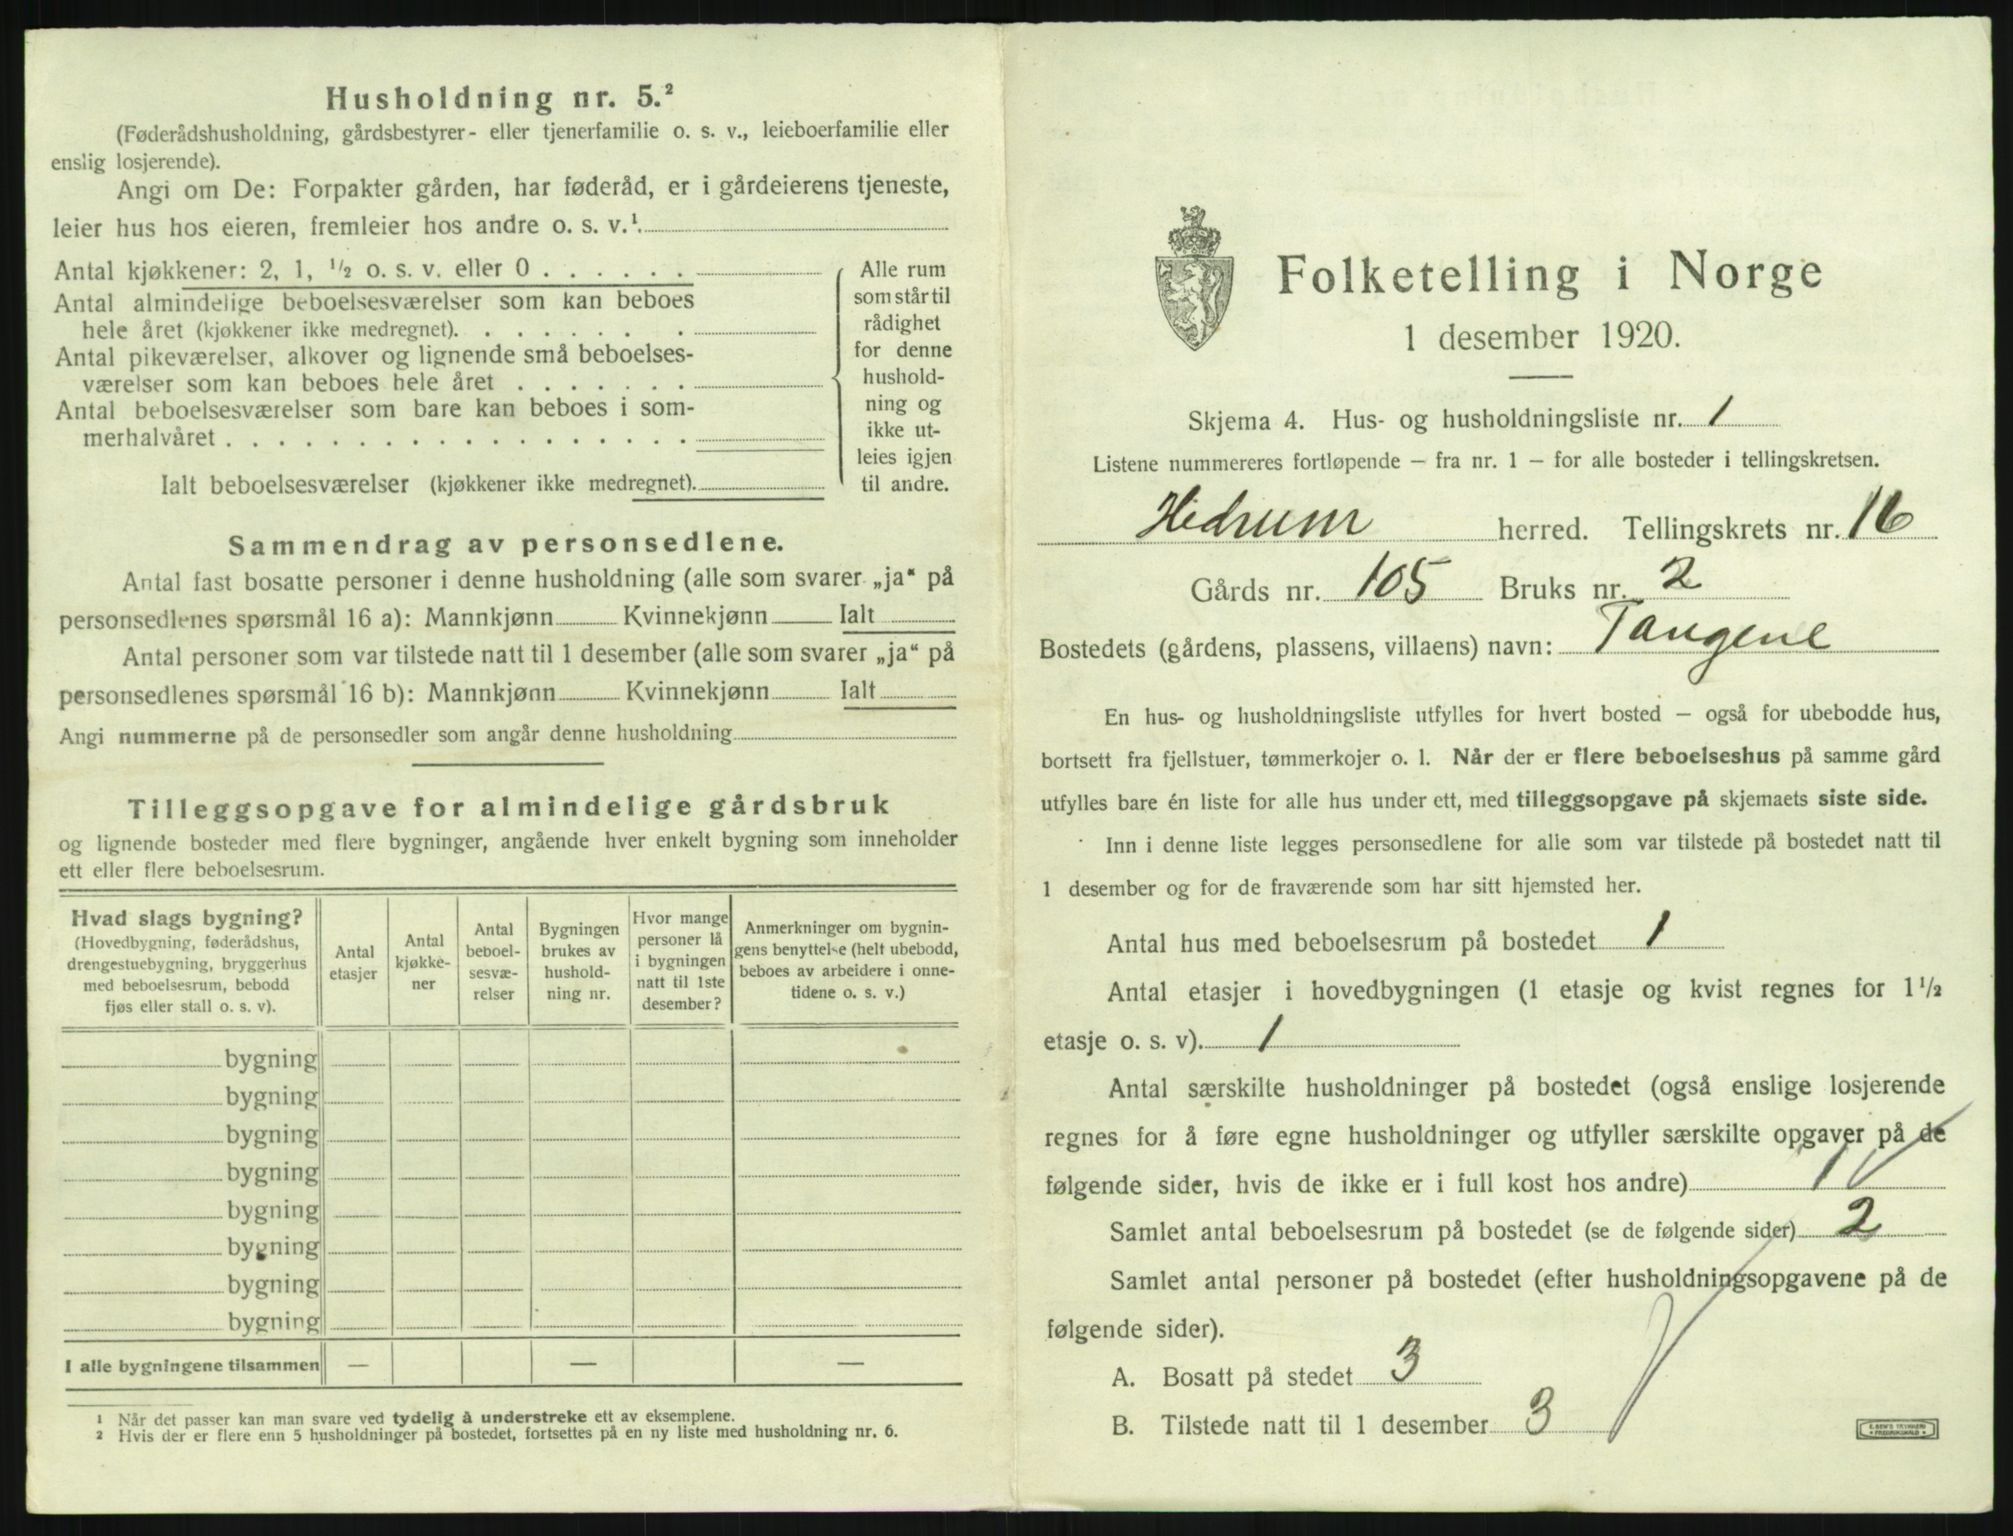 Husholdning nr. 5.²
(Føderådshusholdning, gårdsbestyrer- eller tjenerfamilie o. s. v., leieboerfamilie eller
enslig losjerende).
Angi om De: Forpakter gården, har føderåd, er i gårdeierens tjeneste,
leier hus hos eieren, fremleier hos andre o. s. v.¹.
Antal kjøkkener: 2, 1, ½ o. s. v. eller 0 . . . . . .
Antal almindelige beboelsesværelser som kan beboes
hele året (kjøkkener ikke medregnet). . . . . . . . .
Antal pikeværelser, alkover og lignende små beboelses-
værelser som kan beboes hele året . . . . . . .
Antal beboelsesværelser som bare kan beboes i som-
merhalvåret . . . . . . . . . . . . . . . . . .
Ialt beboelsesværelser (kjøkkener ikke medregnet).
Alle rum
som står til
rådighet
for denne
hushold-
ning og
ikke ut-
leies igjen
til andre.
Sammendrag av personsedlene.
Antal fast bosatte personer i denne husholdning (alle som svarer „ja“ på
personsedlenes spørsmål 16 a): Mannkjønn Kvinnekjønn Ialt
Antal personer som var tilstede natt til 1 desember (alle som svarer „ja“ på
personsedlenes spørsmål 16 b): Mannkjønn Kvinnekjønn Ialt
Angi nummerne på de personsedler som angår denne husholdning
Tilleggsopgave for almindelige gårdsbruk
og lignende bosteder med flere bygninger, angående hver enkelt bygning som inneholder
ett eller flere beboelsesrum.
Hvad slags bygning?
(Hovedbygning, føderådshus,
drengestuebygning, bryggerhus
med beboelsesrum, bebodd
fjøs eller stall o. s. v).
Antal
etasjer
Antal
kjøkke-
ner
Antal
beboel-
sesvæ-
relser
Bygningen
brukes av
hushold-
ning nr.
Hvor mange
personer lå
i bygningen
natt til 1ste
desember?
Anmerkninger om bygnin-
gens benyttelse (helt ubebodd,
beboes av arbeidere i onne-
tidene o. s. v.)
bygning
bygning
bygning
bygning
bygning
bygning
bygning
bygning
I alle bygningene tilsammen — — —
¹ Når det passer kan man svare ved tydelig å understreke ett av eksemplene.
² Hvis der er flere enn 5 husholdninger på bostedet, fortsettes på en ny liste med husholdning nr. 6.
Folketelling i Norge
1 desember 1920.
Skjema 4. Hus- og husholdningsliste nr. 1
Listene nummereres fortløpende — fra nr. 1 — for alle bosteder i tellingskretsen.
Hedrum herred. Tellingskrets nr. 16
Gårds nr. 105 Bruks nr. 2
Bostedets (gårdens, plassens, villaens) navn: Tangene
En hus- og husholdningsliste utfylles for hvert bosted — også for ubebodde hus,
bortsett fra fjellstuer, tømmerkojer o. l. Når der er flere beboelseshus på samme gård
utfylles bare én liste for alle hus under ett, med tilleggsopgave på skjemaets siste side.
Inn i denne liste legges personsedlene for alle som var tilstede på bostedet natt til
1 desember og for de fraværende som har sitt hjemsted her.
Antal hus med beboelsesrum på bostedet 1
Antal etasjer i hovedbygningen (1 etasje og kvist regnes for 1½
etasje o. s. v). 1
Antal særskilte husholdninger på bostedet (også enslige losjerende
regnes for å føre egne husholdninger og utfyller særskilte opgaver på de
følgende sider, hvis de ikke er i full kost hos andre) 1
Samlet antal beboelsesrum på bostedet (se de følgende sider) 2
Samlet antal personer på bostedet (efter husholdningsopgavene på de
følgende sider).
A. Bosatt på stedet 3
B. Tilstede natt til 1 desember 3